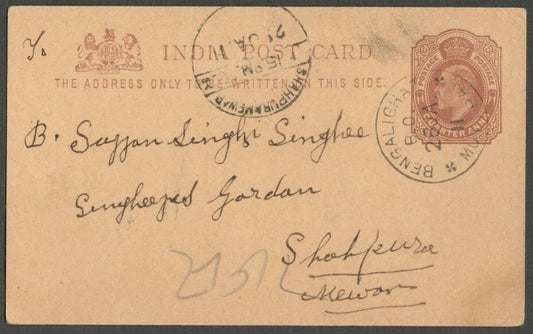 Y.
INDIA POST CARD
THE ADDRESS ONLY TO BE WRITTEN ON THIS SIDE.
SHAHPURA MEWAR
JA. 11
POSTAGE POSTAGE
QUARTER ANNA
BENGALIGHAT
B.O.
B. Sajjan Singh Singhee
Singheejes Gordan
Shahpura
Mewar